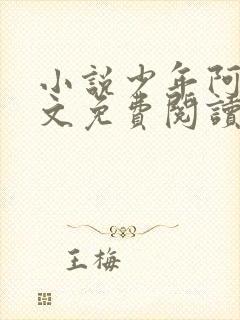 小說少年阿
文免費閱讀
王梅